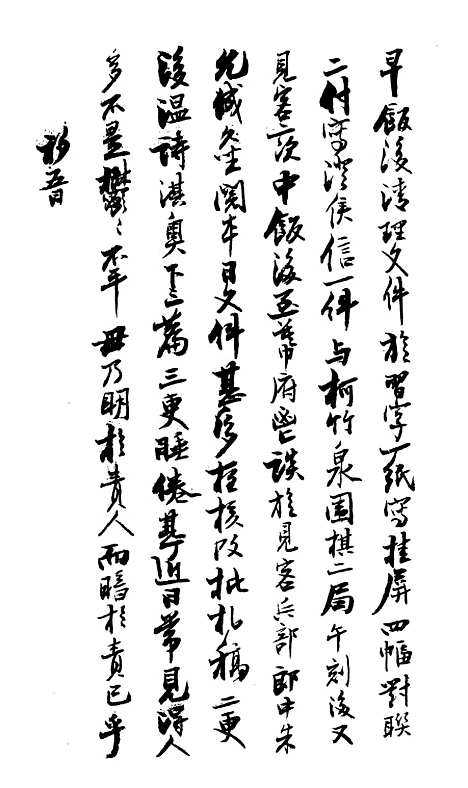 早飯後清理文件於習字一紙寫挂屏四幅對聯
二付寫澄侯信一件与柯竹泉圍棋二局午刻後又
見客二次中飯後至幕府鬯談於見客兵部郎中朱
允成坐閱本日文件甚多夜核改批札稿二更
後溫詩淇奥下三篇三更睡倦甚近日常見得人
多不是鬱〻不平毋乃明於責人而暗於責己乎
初五日